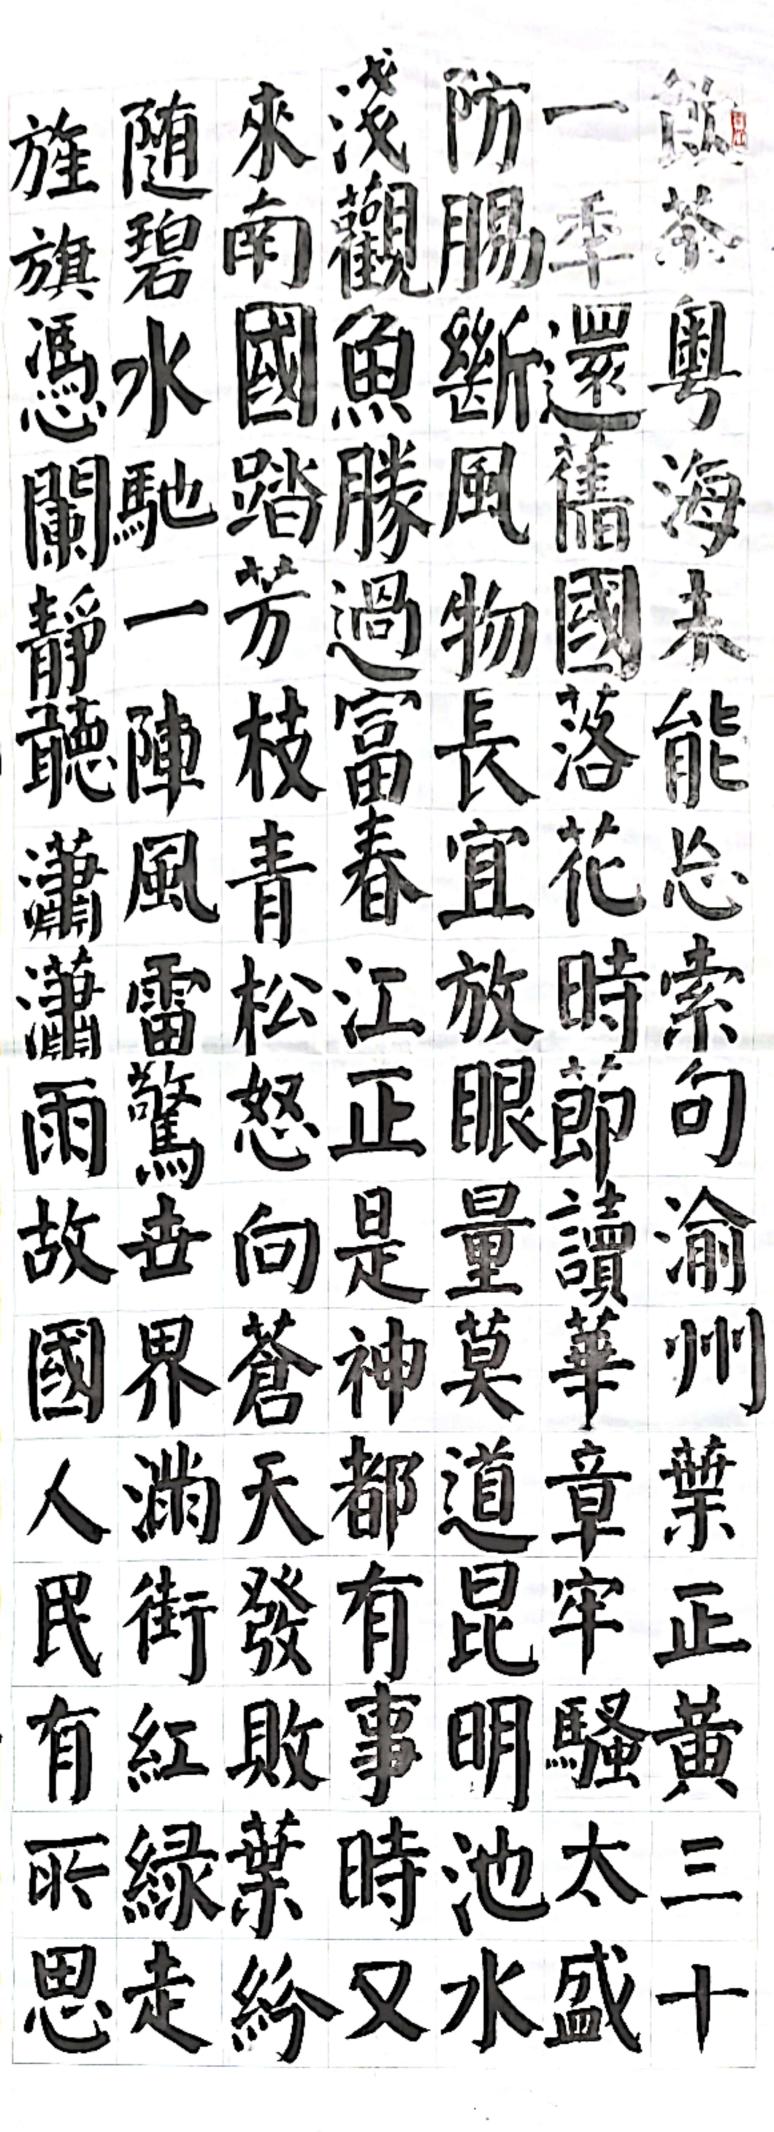 飲茶粵海未能忘索句渝州葉正黃三十
一季還舊國落花時節讀華章牢騷太盛
防腸斷風物長宜放眼量莫道昆明池水
淺觀魚勝過富春江正是神都有事時又
來南國踏芳枝青松怒向蒼天發敗葉紛
随碧水馳一陣風雷驚世界滿街紅緑走
旌旗憑闌靜聽瀟瀟雨故國人民有所思